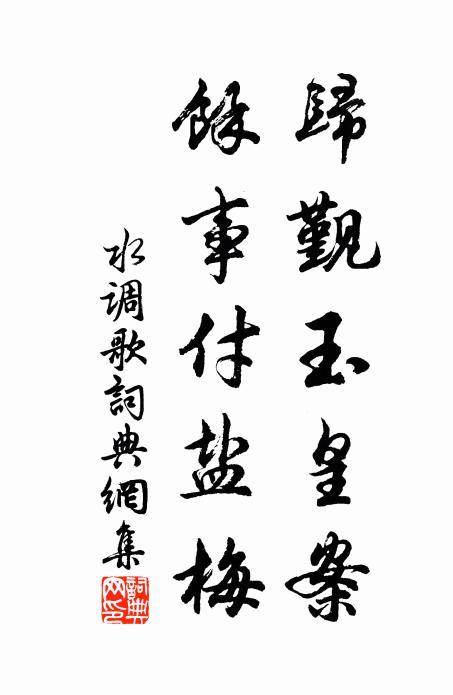 歸覲玉皇案
餘事付盐梅
水调歌詞典網集
詞典網印